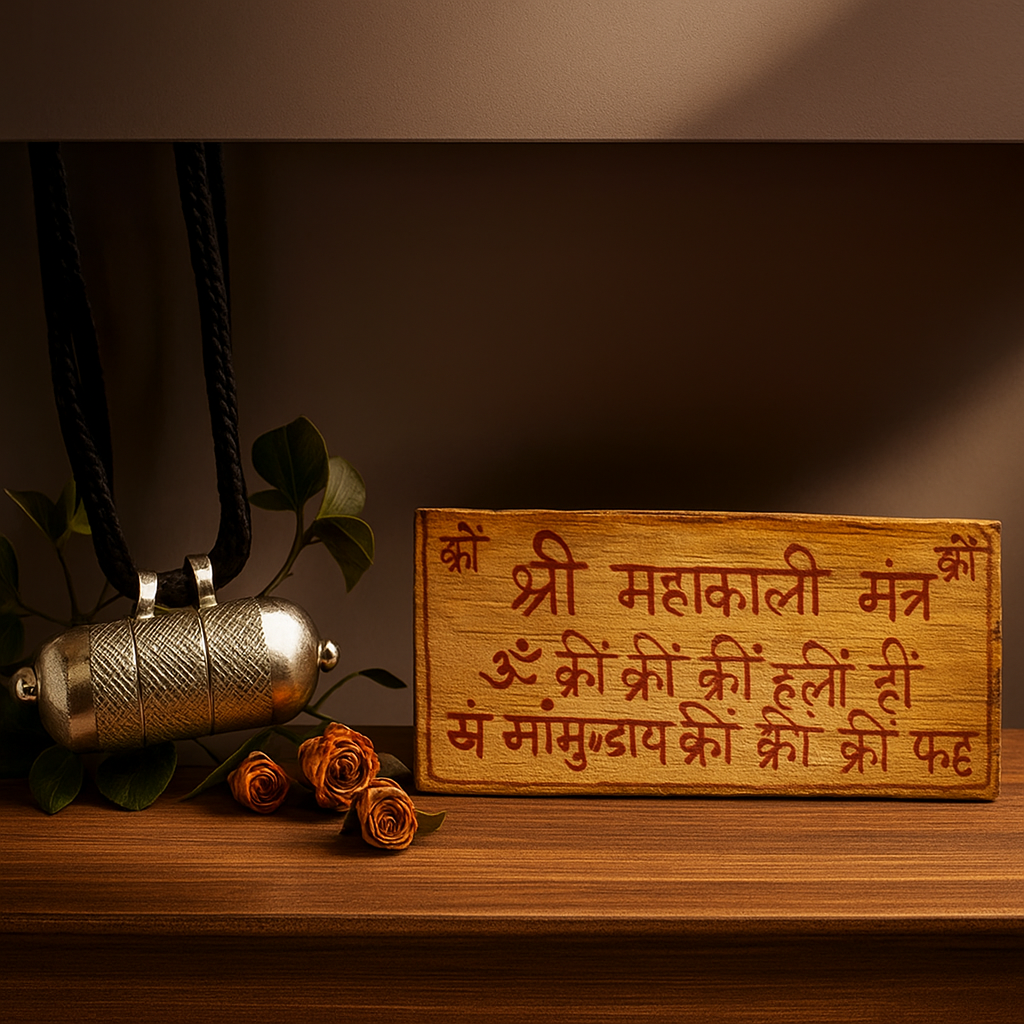 क्रों श्री महाकाली मंत्र क्रों
ॐ क्रीं क्रीं क्रीं हलीं ह्रीं
मांमुण्डाय क्रीं क्रीं क्रीं फट